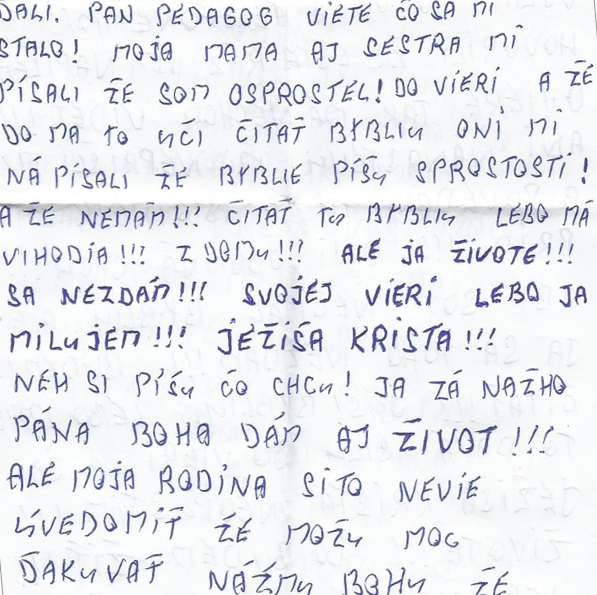 DALI. PAN PEDAGOG VIETE ČO SA MI
STALO! MOJA MAMA AJ SESTRA MI
PÍSALI ŽE SOM OSPROSTEL! DO VIERI A ŽE
DO MA TO UČI ČITAŤ BYBLIU ONI MI
NÁ PÍSALI ŽE BYBLIE PÍŠU SPROSTOSTI!
A ŽE NEMÁM!!! ČITAŤ TU BYBLIU LEBO MÁ
VIHODIA!!! Z DOMU!!! ALE JA ŽIVOTE!!!
SA NEZDÁM!!! SVOJEJ VIERI LEBO JA
MILUJEM!!! JEŽIŠA KRISTA!!!
NEH SI PÍŠU ČO CHCU! JA ZÁ NAŽHO
PÁNA BOHA DAM AJ ŽIVOT!!!
ALE MOJA RODINA SI TO NEVIE
ÚVEDOMIŤ ŽE MOŽU MOC
ĎAKUVAŤ NÁŽMU BOHU ŽE